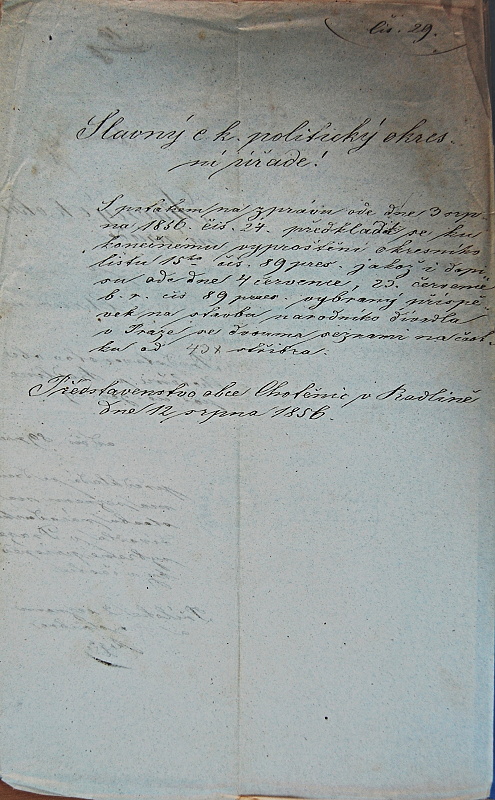 čís. 29.
Slavný c. k. politický okres-
ní úřade!
S potahem na zprávu ode dne 3 srp-
na 1856 čís. 24. předkládá se ku
konečnému vyproštění okresního
listu 15ho čís. 89 pres. jakož i dopi-
su ode dne 4 července, 23. července
b. r. čís 89 praes. vybraný příspě-
vek na stavbu národního divadla
v Praze se dvouma seznama na část-
ku od 43 x stříbra.
Představenstvo obce Chotěnic v Radlíně
dne 12 srpna 1856.